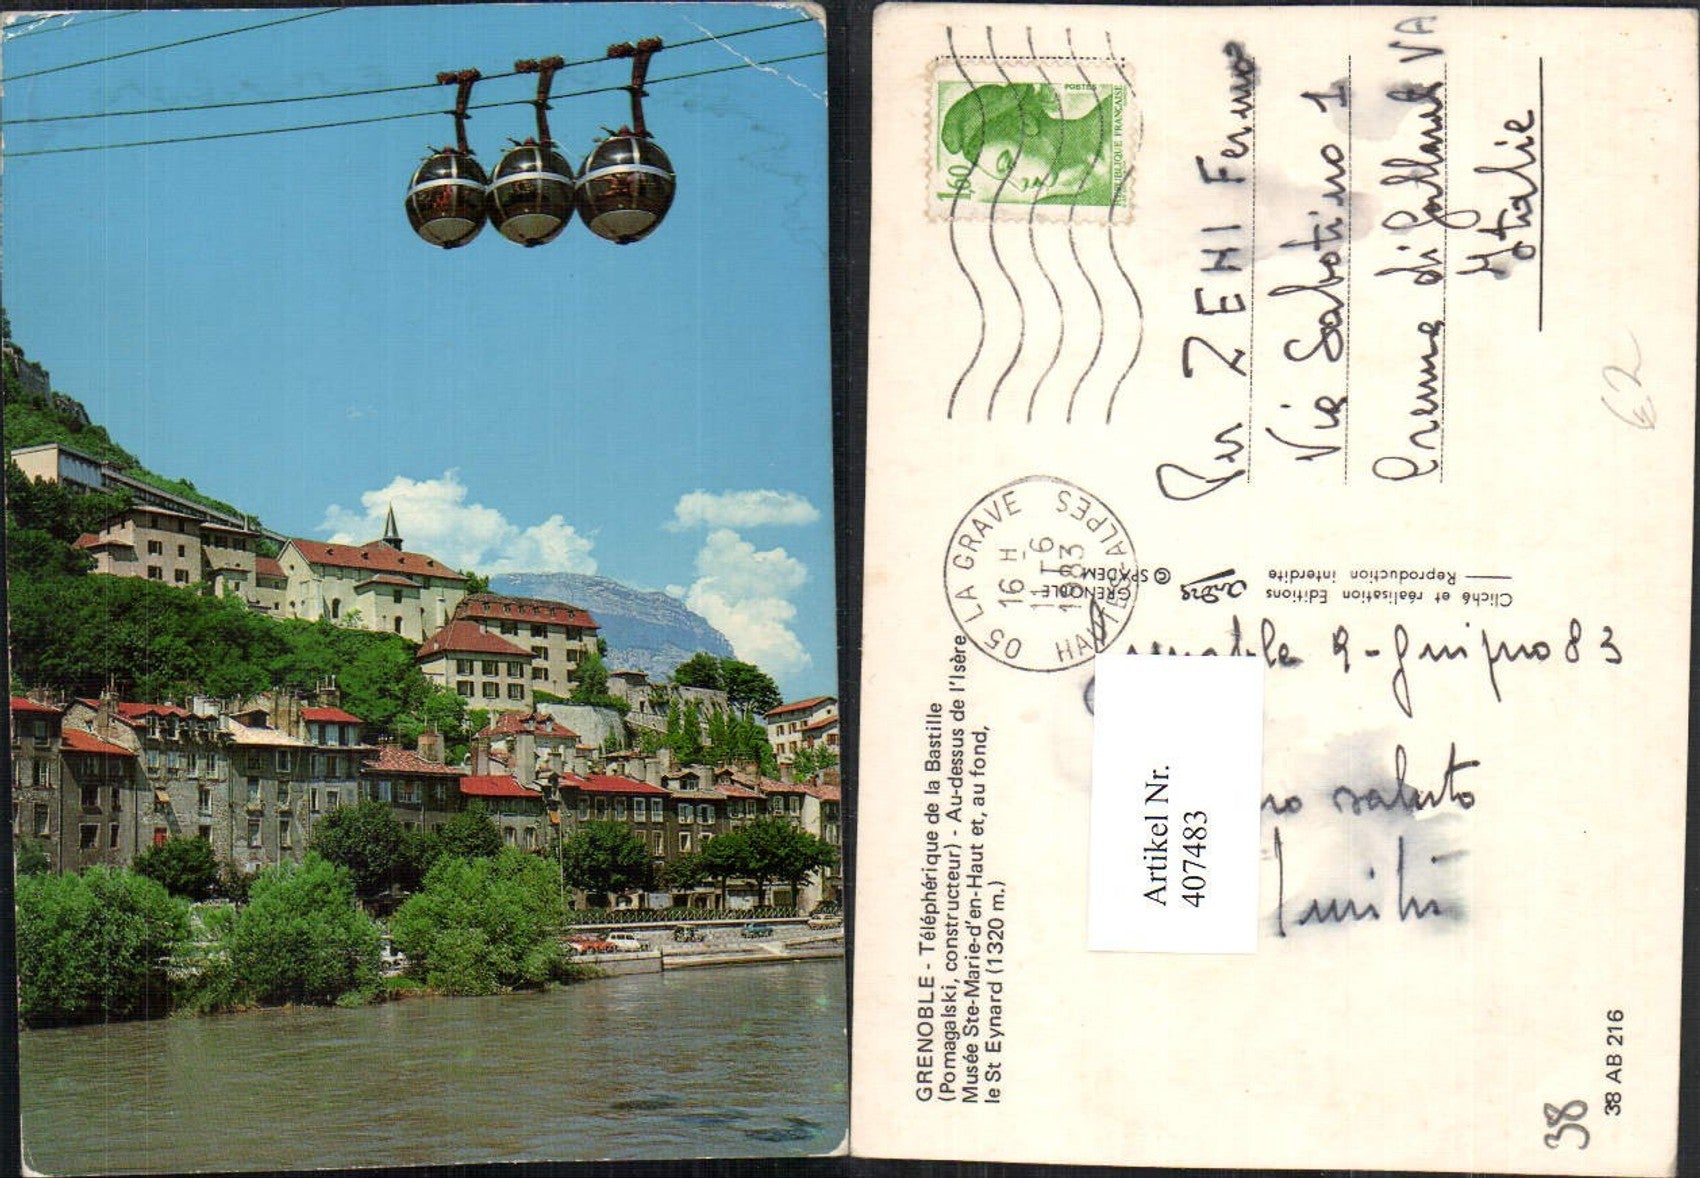 GRENOBLE - Téléphérique de la Bastille
(Pomagalski, constructeur) - Au-dessus de l'Isère
Musée Ste-Marie-d'en-Haut et, au fond,
le St Eynard (1320 m.)
POSTES
1,60
REPUBLIQUE FRANÇAISE
05 LA GRAVE
16 H
11-6
1983
HAUTES-ALPES
Cliché et réalisation Editions André GRENOBLE
Reproduction interdite © SPADEM
ZENI Fermo
Via Sabotino 1
di Gallarate VA
Italie
9 - 83
saluto
Artikel Nr.
407483
62
38
38 AB 216